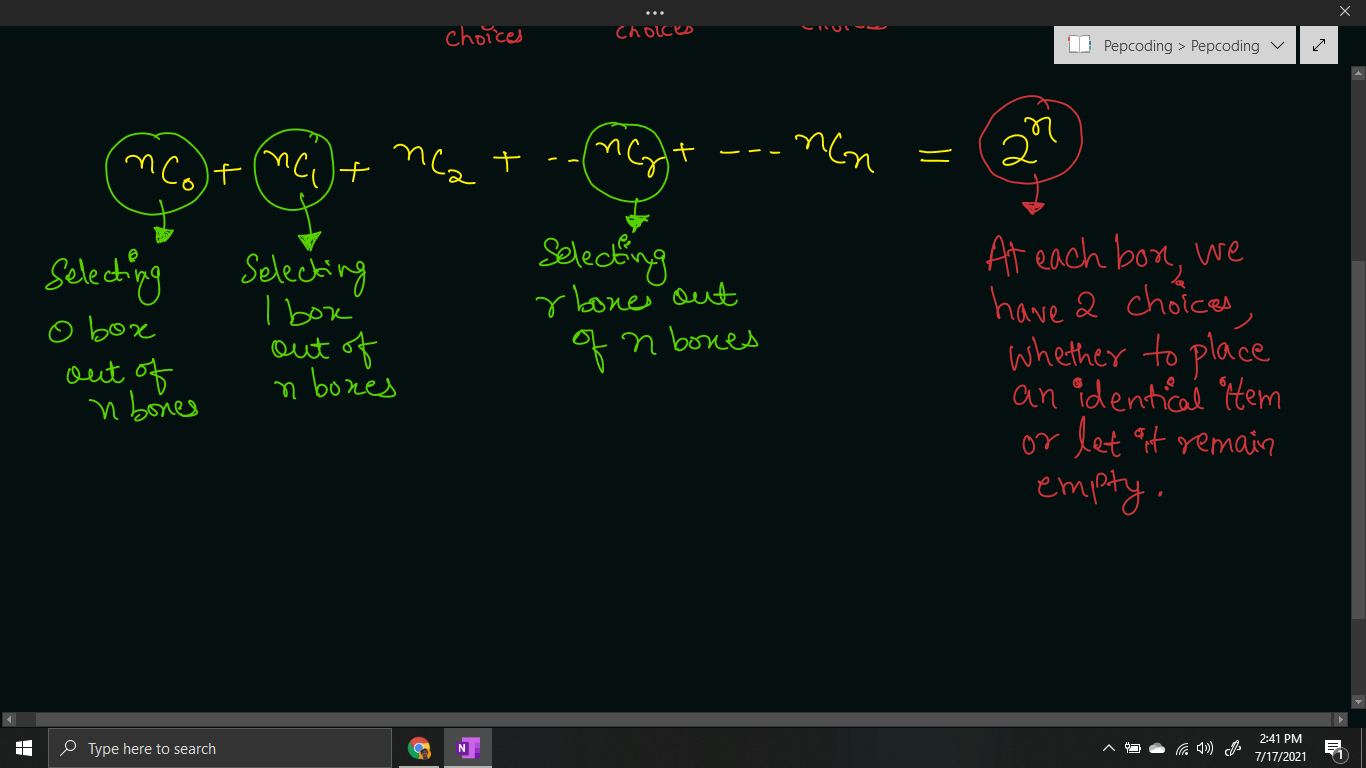 choices choices choices
Pepcoding > Pepcoding
nC₀ + nC₁ + nC₂ + -- nCᵣ + --- nCₙ = 2ⁿ
Selecting
0 box
out of
n boxes
Selecting
1 box
out of
n boxes
Selecting
r boxes out
of n boxes
At each box, we
have 2 choices,
whether to place
an identical item
or let it remain
empty.
Type here to search
2:41 PM
7/17/2021
1